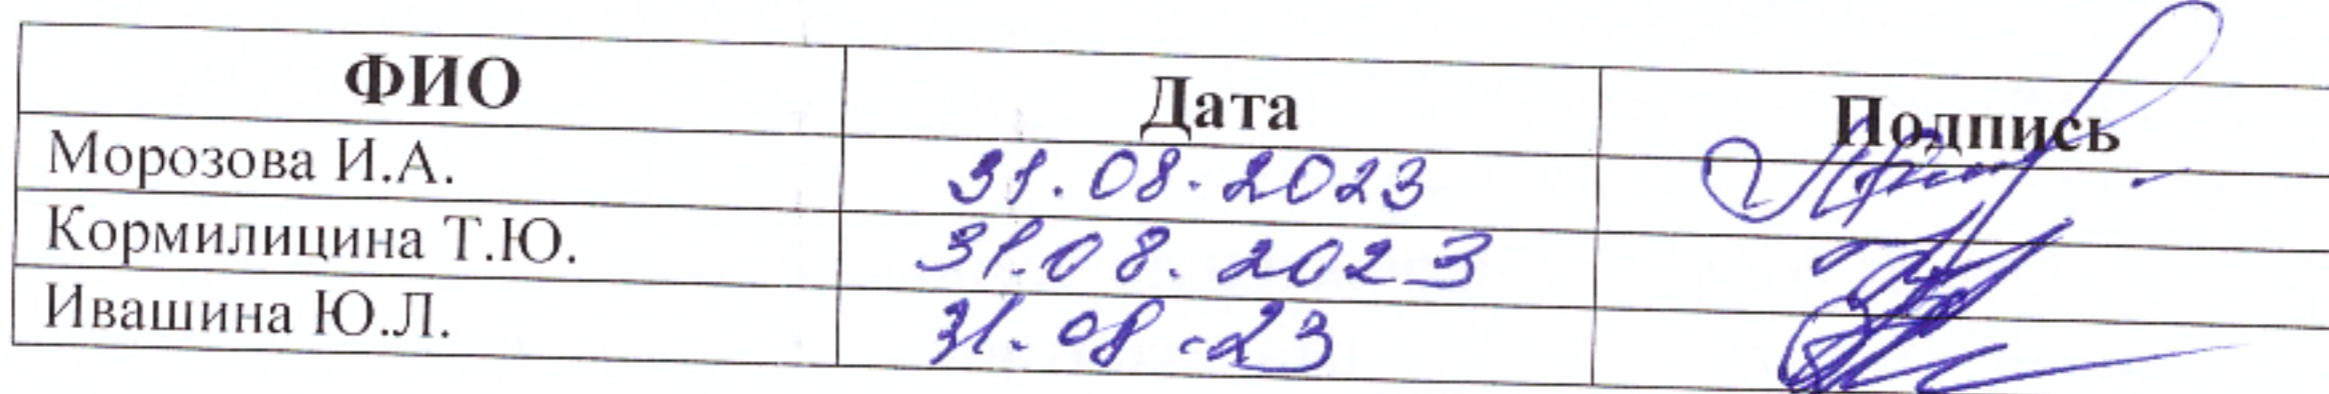 ФИО Дата Подпись
Морозова И.А. 31.08.2023
Кормилицина Т.Ю. 31.08.2023
Ивашина Ю.Л. 31.08.23